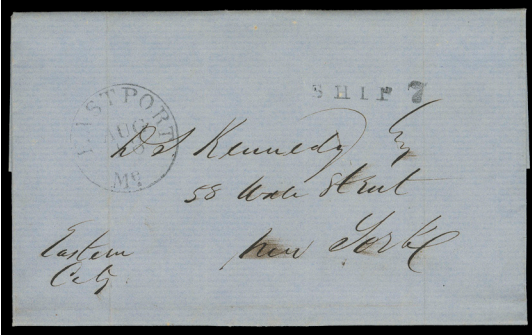 SHIP 7
EASTPORT
AUG
Me
D S Kennedy Esq
58 Wall Street
New York
Eastern
City